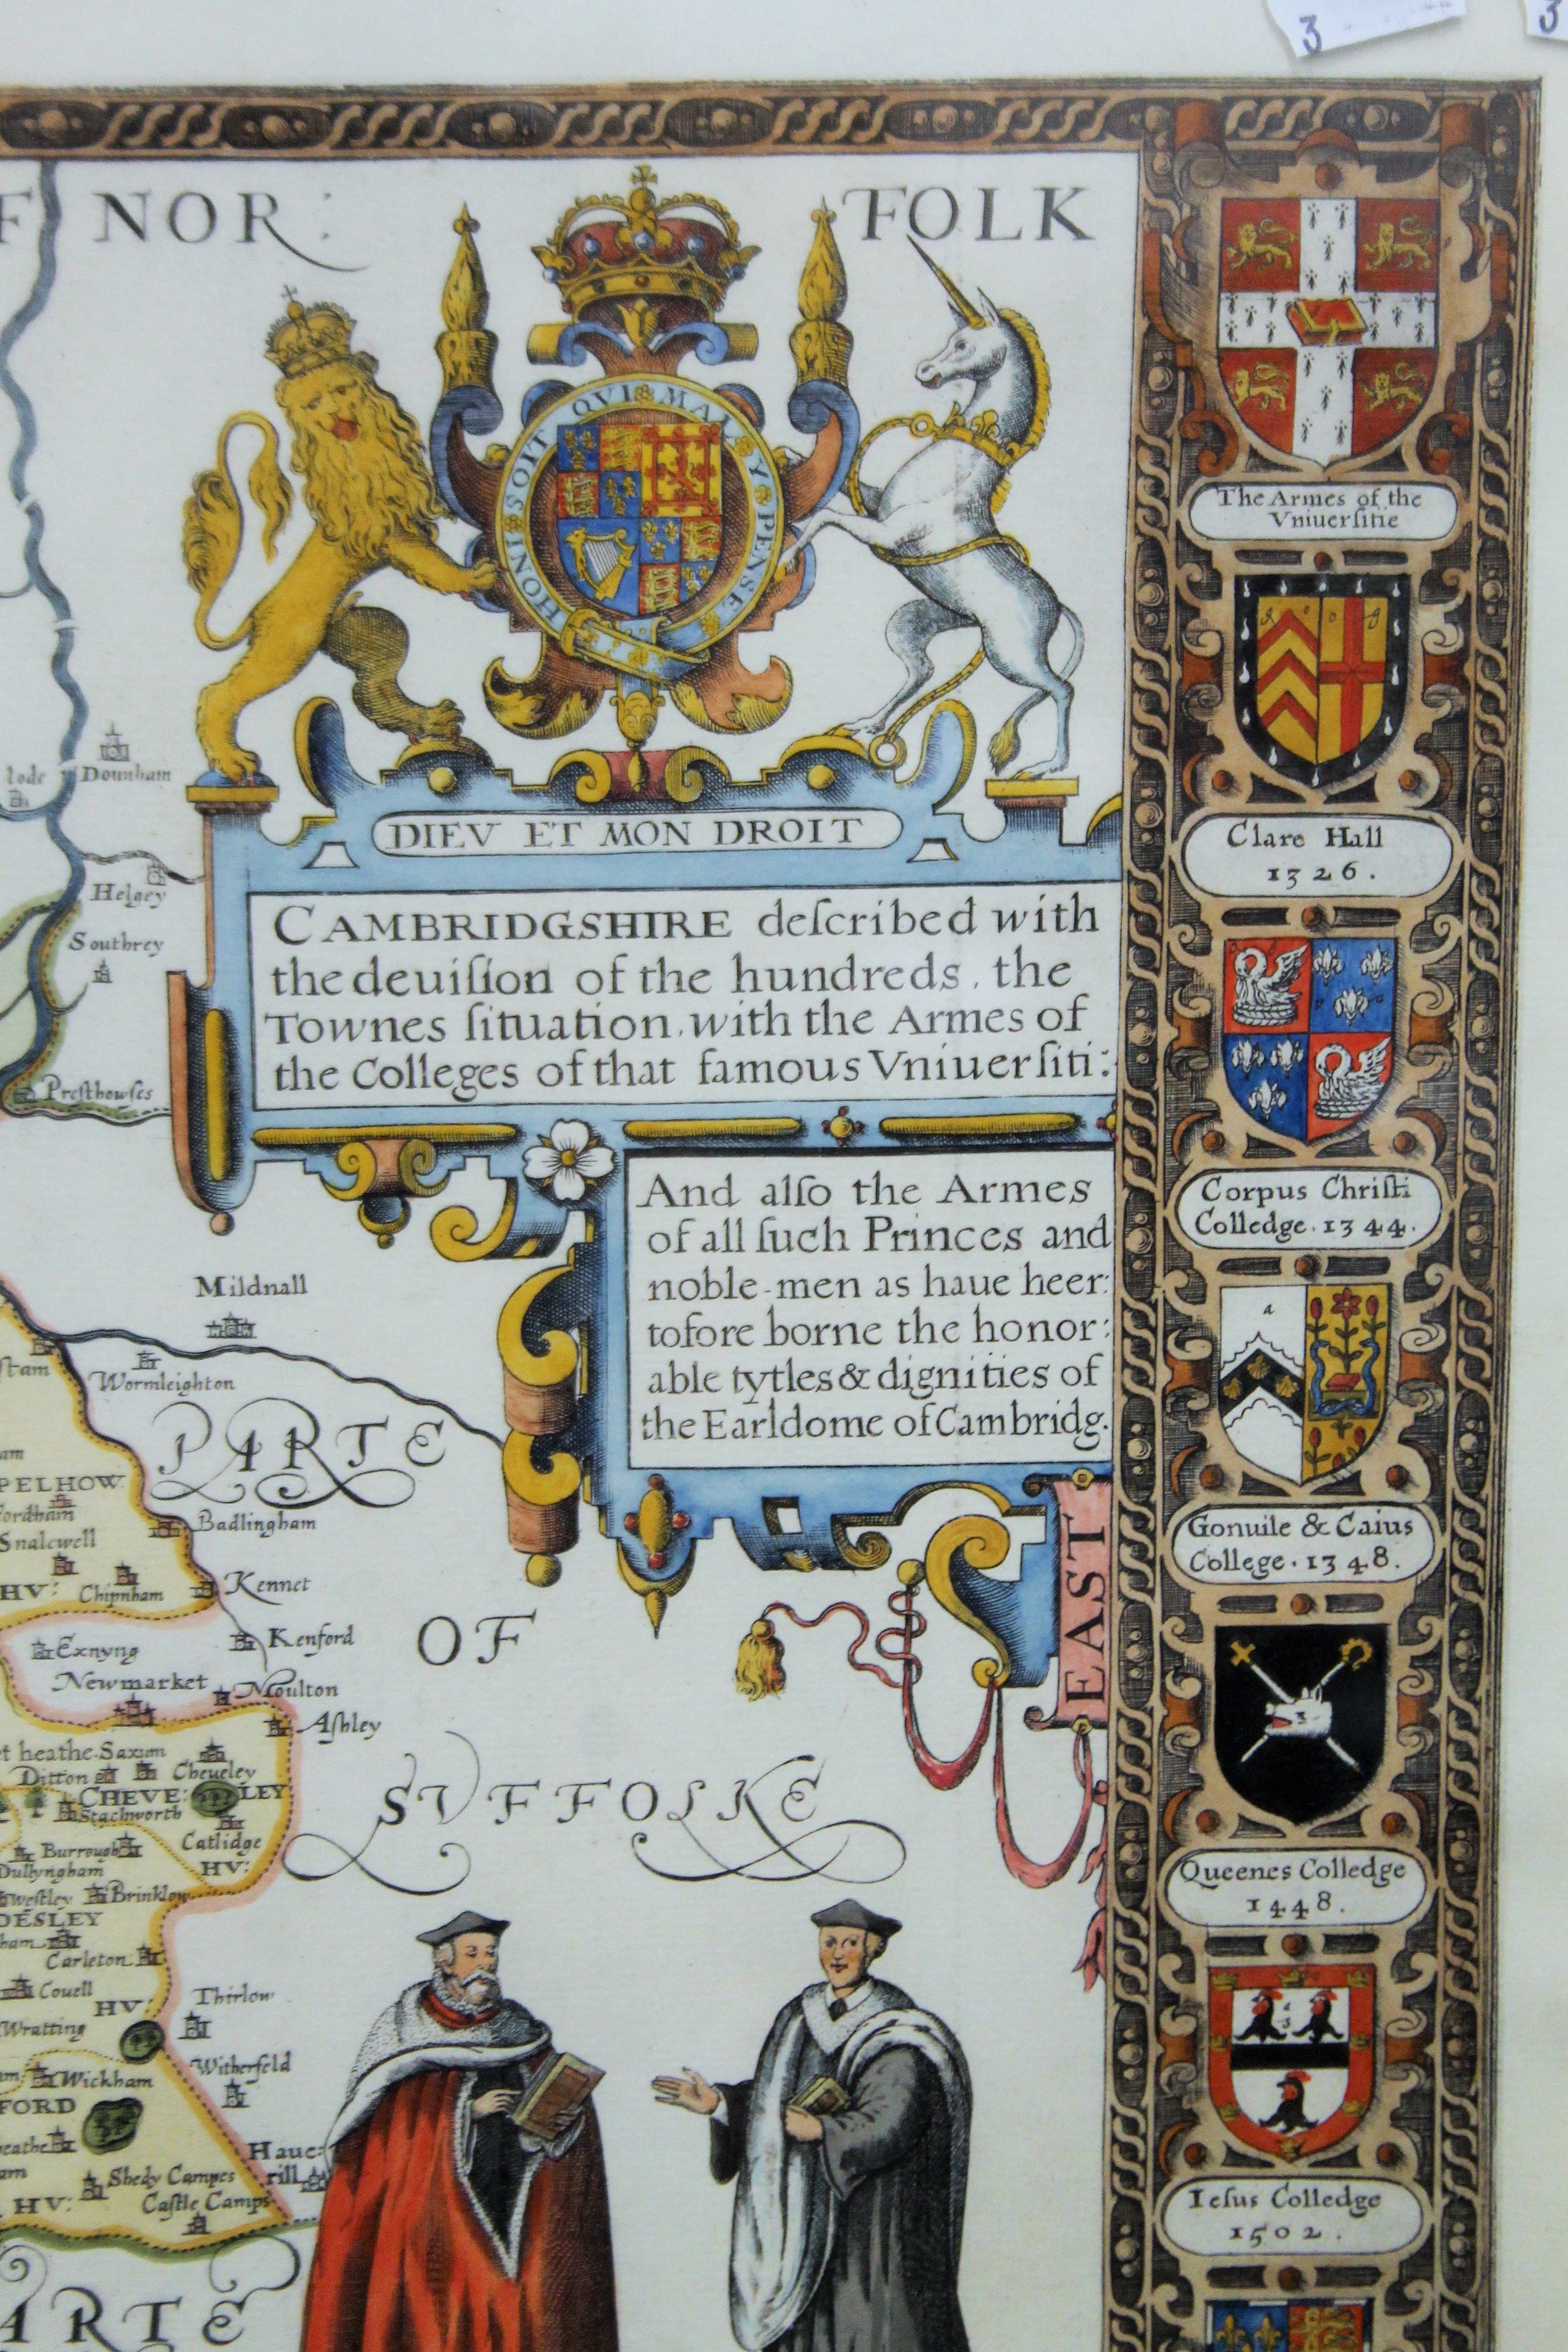 3
3
F NOR: FOLK
HONI SOIT QVI MAL Y PENSE
DIEV ET MON DROIT
CAMBRIDGSHIRE deſcribed with
the deuiſion of the hundreds, the
Townes ſituation, with the Armes of
the Colleges of that famous Vniuerſiti:
And alſo the Armes
of all ſuch Princes and
noble-men as haue heer:
tofore borne the honor:
able tytles & dignities of
the Earldome of Cambridg.
EAST
The Armes of the
Vniuerſitie
Clare Hall
1326.
Corpus Chriſti
Colledge. 1344.
a
Gonuile & Caius
College. 1348.
Queenes Colledge
1448.
Ieſus Colledge
1502.
lode
Dounham
Helgey
Southrey
Preſthouſes
Mildnall
ſtam
Wormleighton
PARTE
OF
SVFFOLKE
am
PELHOW
fordham
Snalewell
HV:
Chipnham
Badlingham
Kennet
Exnyng
Kenford
Newmarket
Moulton
Aſhley
et heathe
Saxum
Ditton
Cheueley
CHEVE: LEY
Stachworth
Burrough
Catlidge
Dullyngham
HV:
weſtley
Brinklow
DESLEY
ham
Carleton
Couell
HV:
Thirlow
Wratting
Witherfeld
am
Wickham
FORD
heathe
Haue:
rill
am
Shedy Campes
HV:
Caſtle Camps
ARTE